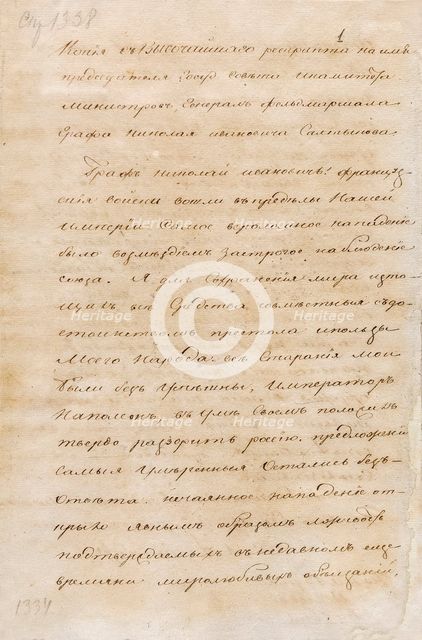 Спр 1338
1
Копія съ Высочайшаго рескрипта на имя
председателя Госуд. Совета и комитета
Министровъ Генерала Фельдмаршала
Графа Николая Ивановича Салтыкова
Графъ Николай Ивановичь! Француз-
скія войски вошли въ пределы Нашей
Имперіи. Самое вероломное нападеніе
было возмездіемъ за строгое наблюденіе
союза. Я для сохраненія мира исто-
щилъ все средства совместныя съ до-
стоинствомъ престола и пользы
Моего Народа. Все старанія Мои
были безъ успешны, Императоръ
Наполеонъ въ уме Своемъ положилъ
твердо разорить россію. предложеніи
самыя умеренныя остались безъ
ответа. нечаянное нападеніе от-
крыло явнымъ образомъ лживость
подтверждаемыхъ въ недавномъ еще
времени миролюбивыхъ обещаній,
1334
C
Heritage
Heritage
Heritage
Heritage
Heritage
Heritage
Heritage